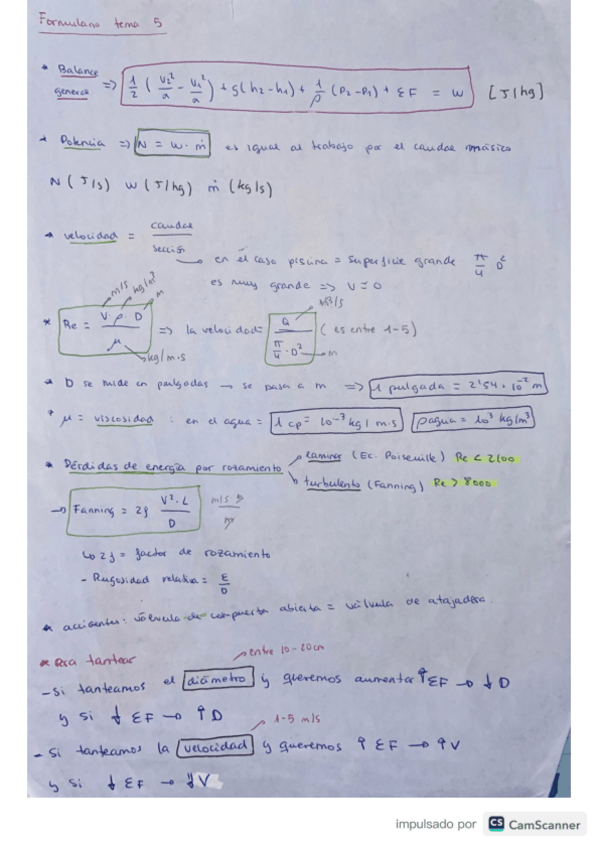 Formulario tema 5
* Balance general => 1/2 (V2²/α - V1²/α) + g(h2-h1) + 1/ρ (P2-P1) + ΣF = w [J/kg]
* Potencia => N = w · ṁ es igual al trabajo por el caudal másico
N (J/s) w (J/kg) ṁ (kg/s)
* velocidad = caudal / sección
→ en el caso piscina = superficie grande π/4 D²
es muy grande => v = 0
m/s kg/m³ m
* Re = V ρ D / μ => la velocidad = Q / π/4 · D² (es entre 1-5)
m³/s
m
kg/m·s
* D se mide en pulgadas → se pasa a m => 1 pulgada = 2'54 · 10⁻² m
* μ = viscosidad : en el agua = 1 cp = 10⁻³ kg/m·s ρagua = 10³ kg/m³
* Pérdidas de energía por rozamiento
laminar (Ec. Poiseuille) Re < 2100
turbulento (Fanning) Re > 8000
→ Fanning = 2f V²·L / D
m/s
m
↳ 2f = factor de rozamiento
- Rugosidad relativa = ε/D
* accidentes: válvula de compuerta abierta = válvula de atajadera.
* Para tantear
entre 10-20cm
- Si tanteamos el diámetro y queremos aumentar ↑ΣF → ↓D
y si ↓ ΣF → ↑D
1-5 m/s
- Si tanteamos la velocidad y queremos ↑ ΣF → ↑V
y si ↓ ΣF → ↓V
impulsado por CS CamScanner